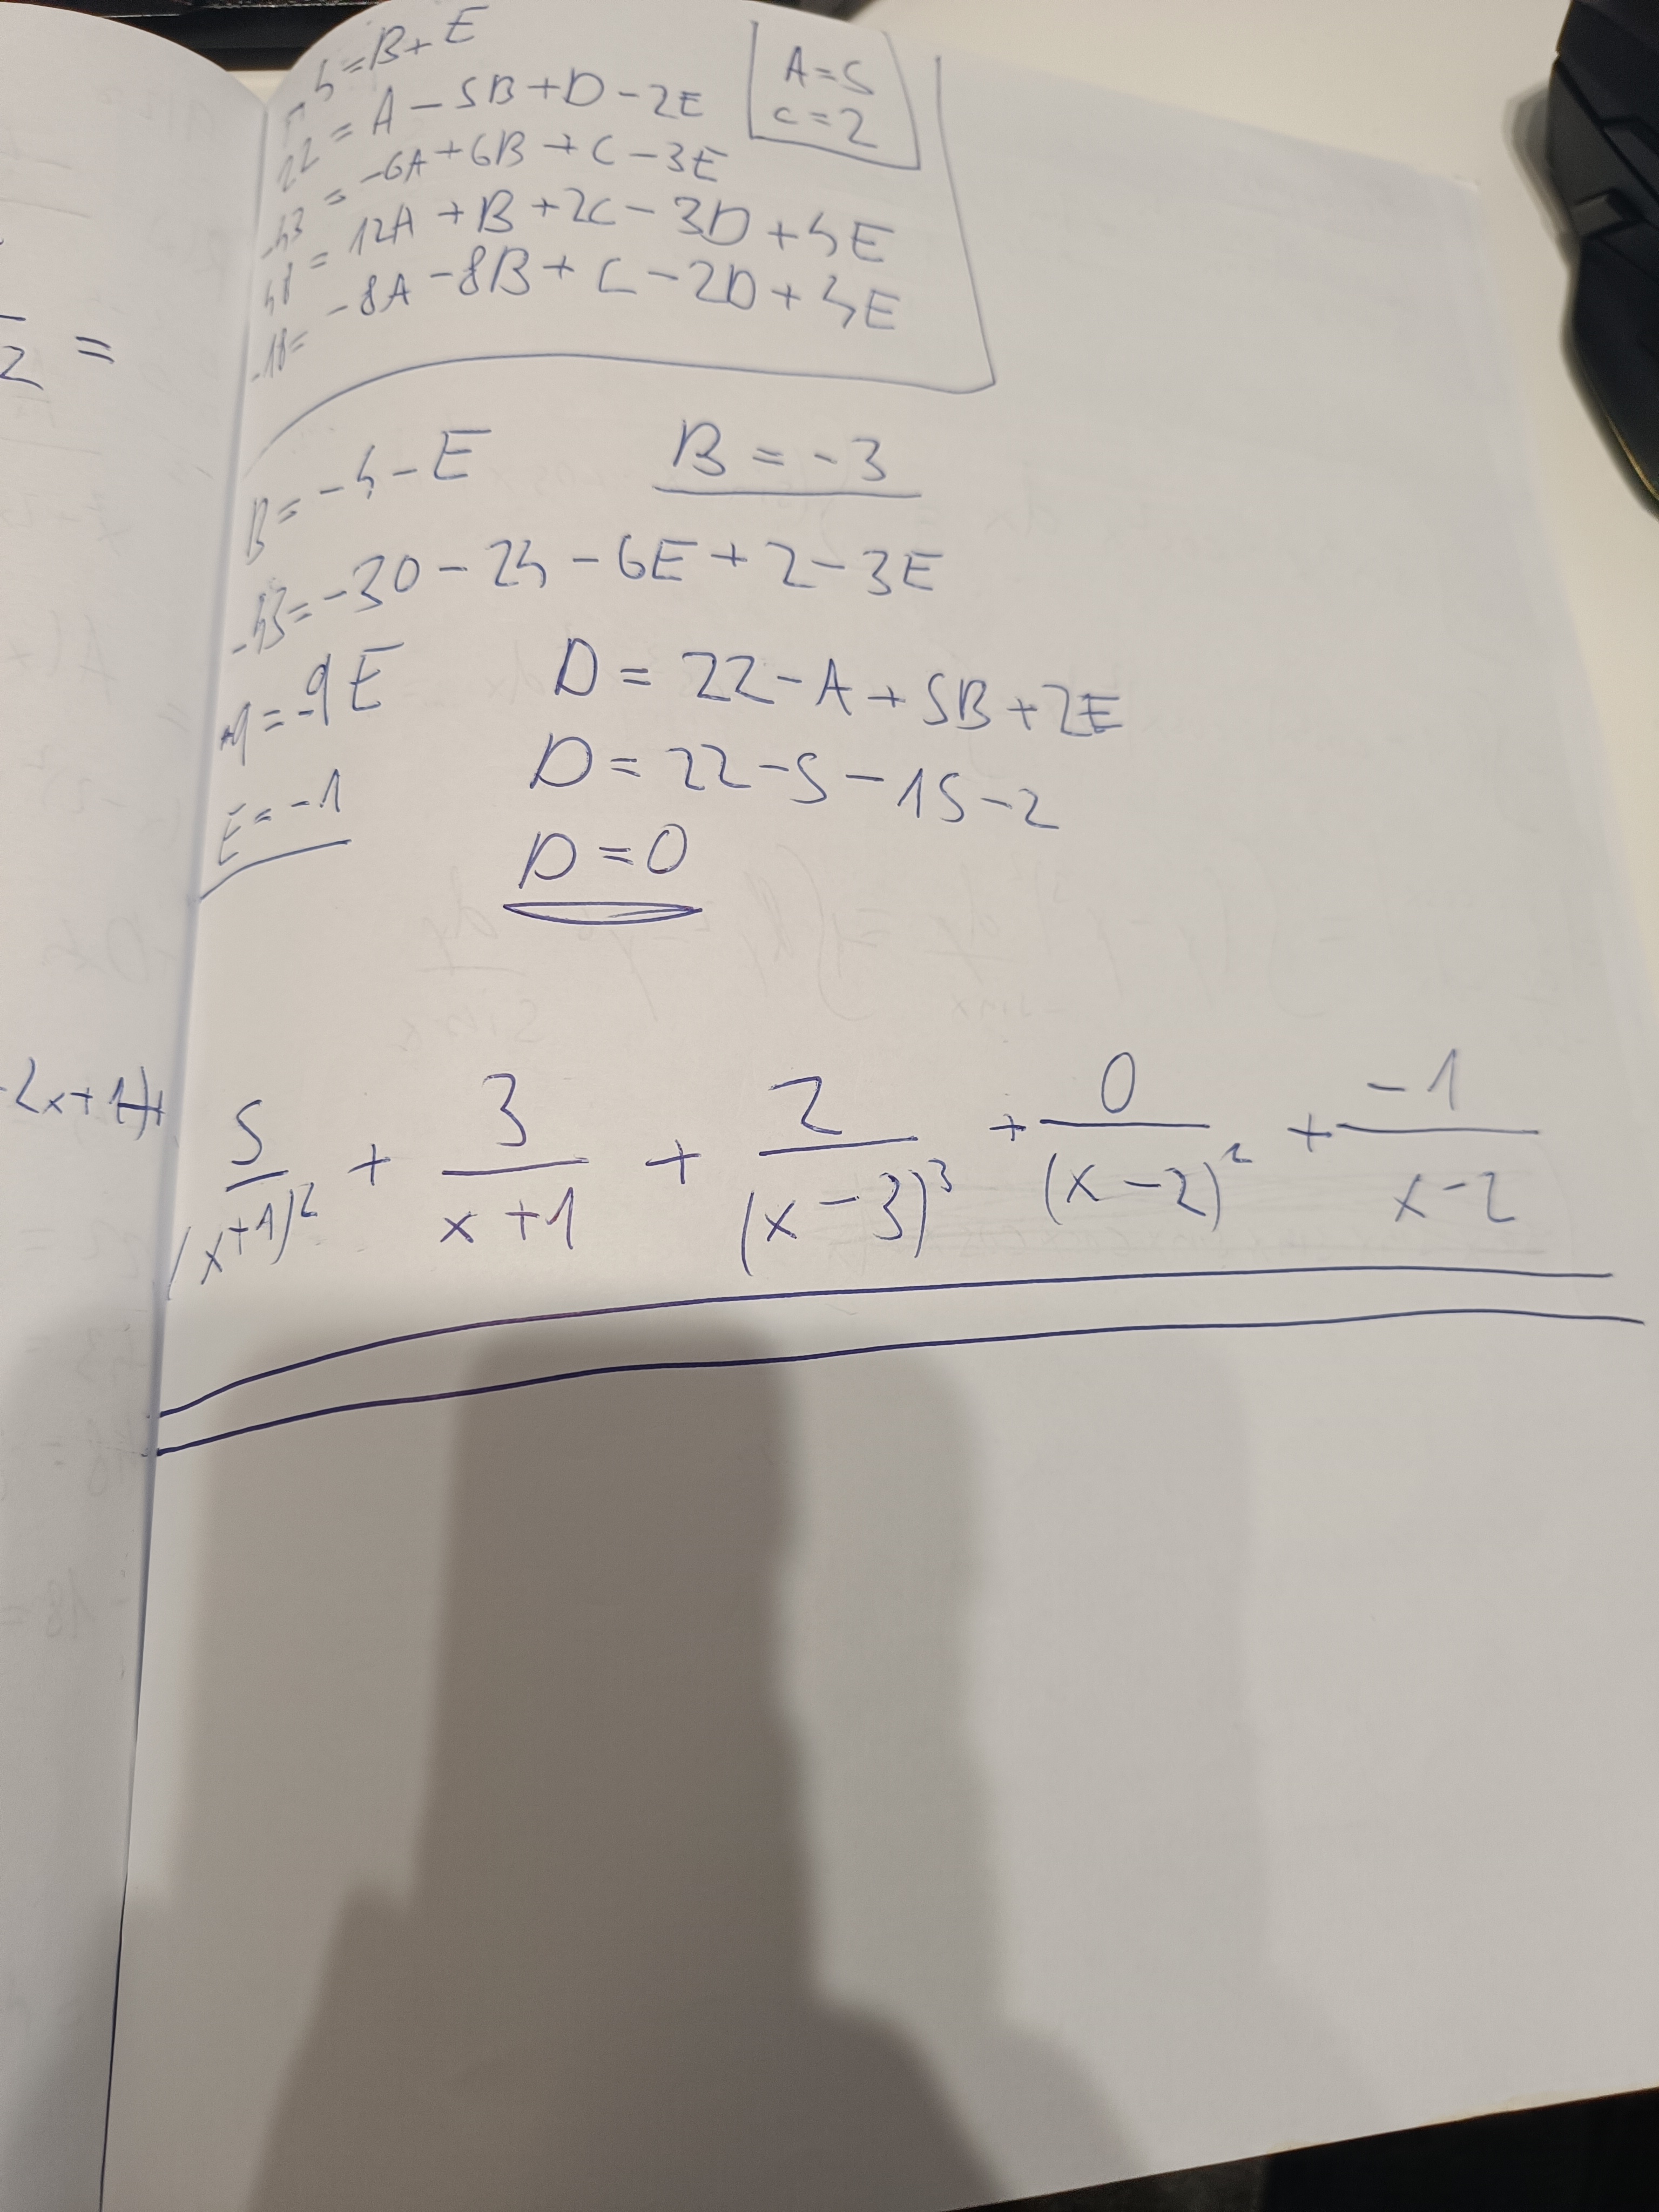 -4 = B + E
22 = A - 5B + D - 2E
A = 5
C = 2
-43 = -6A + 6B + C - 3E
48 = 12A + B + 2C - 3D + 4E
-18 = -8A - 8B + C - 2D + 4E
2 =
B = -4 - E
B = -3
-43 = -30 - 24 - 6E + 2 - 3E
9 = -9E
D = 22 - A + 5B + 2E
E = -1
D = 22 - 5 - 15 - 2
D = 0
2x+1)+
5/(x+1)² + 3/(x+1) + 2/(x-3)³ + 0/(x-2)² + -1/(x-2)